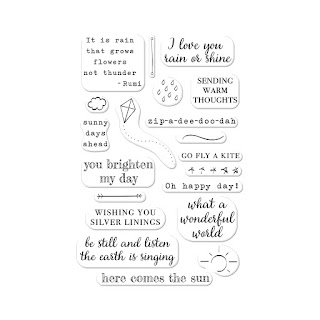 It is rain
that grows
flowers
not thunder
- Rumi
I love you
rain or shine
SENDING
WARM
THOUGHTS
sunny
days
ahead
zip-a-dee-doo-dah
GO FLY A KITE
you brighten
my day
Oh happy day!
WISHING YOU
SILVER LININGS
what a
wonderful
world
be still and listen
the earth is singing
here comes the sun